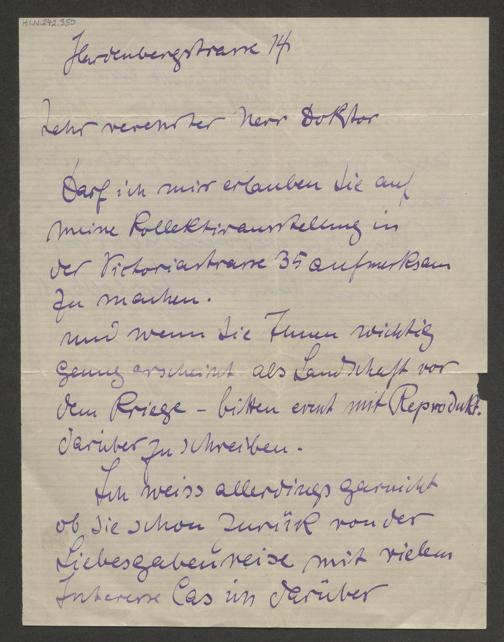 H.I.N. 242.350
Hardenbergstrasse 14
Sehr verehrter Herr Doktor
Darf ich mir erlauben Sie auf
meine Kollektivausstellung in
der Victoriastrasse 35 aufmerksam
zu machen.
und wenn Sie Ihnen wichtig
genug erscheint als Landschaft vor
dem Kriege – bitten event mit Reprodukt.
darüber zu schreiben.
Ich weiss allerdings garnicht
ob Sie schon zurück von der
Liebesgabenreise mit vielem
Interesse las ich darüber